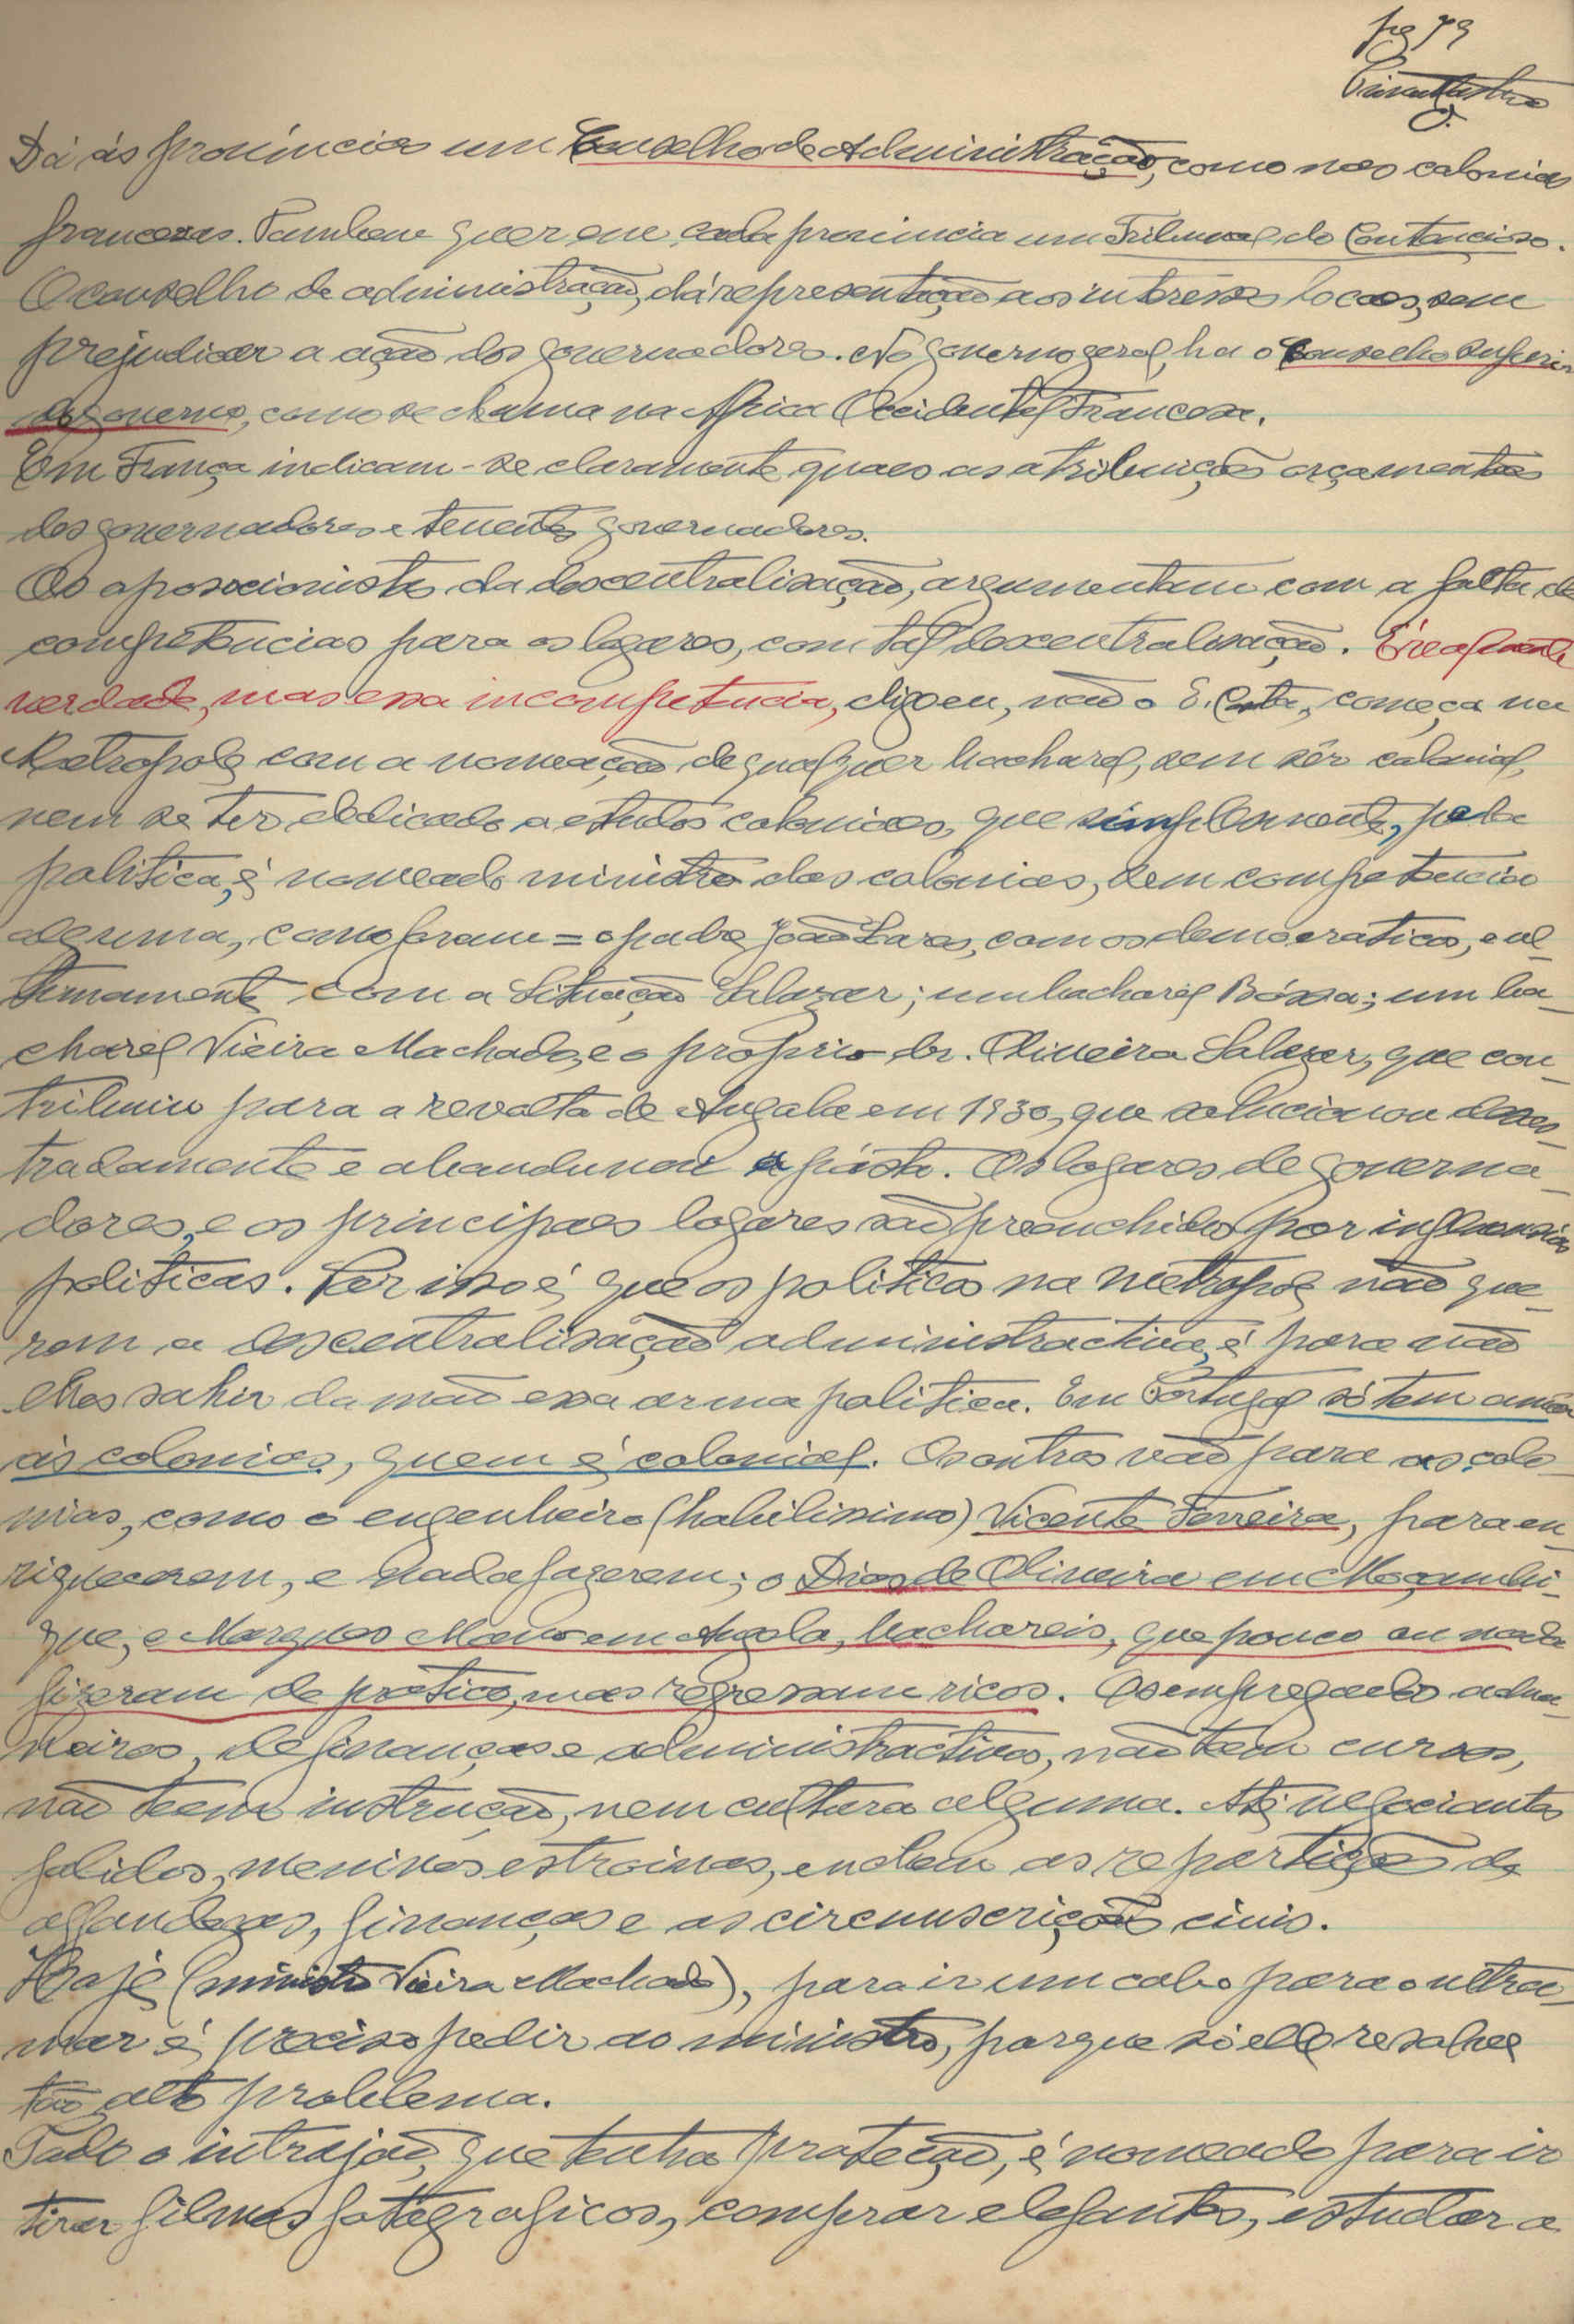 pg 79
Dá ás provincias um Conselho de Administração, como nas colonias
francezas. Tambem quer em cada provincia um Tribunal do Contencioso.
O conselho de administração, dá representação aos interesses locaes, sem
prejudicar a ação dos governadores. No governo geral, ha o Conselho Superior
do governo, como se chama na Africa Occidental Francesa.
Em França indicam-se claramente quaes as atribuições orçamentaes
dos governadores e tenentes governadores.
Os oposicionistas da descentralisação, argumentam com a falta de
competencias para os logares, com tal descentralisação. É realmente
verdade, mas essa incompetencia, digo eu, não o E. Costa, começa na
Metropole com a nomeação de qualquer bacharel, sem sêr colonial,
nem se ter dedicado a estudos coloniaes, que simplesmente, pela
politica, é nomeado ministro das colonias, sem competencia
alguma, como foram = o padre João Soares, com os democraticos, e ul-
timamente com a Situação Salazar; um bacharel Bóssa; um ba-
charel Vieira Machado, e o proprio dr. Oliveira Salazar, que con-
tribuiu para a revolta de Angola em 1930, que solucionou desas-
tradamente e abandunou a pasta. Os logares de governa-
dores, e os principaes logares são preenchidos por influencias
politicas. Por isso é, que os politicos na metropole não que-
rem a descentralisação administractiva, é para não
lhes sahir da mão essa arma politica. Em Portugal só tem amor
ás colonias, quem é colonial. Os outros vão para as colo-
nias, como o engenheiro (habilissimo) Vicente Ferreira, para en-
riquecerem, e nada fazerem; o Dias de Oliveira em Moçambi-
que, e Marques Mano em Angola, bachareis, que pouco ou nada
fizeram de pratico, mas regressam ricos. Os empregados adua-
neiros, de finanças e administractivos, não tem cursos,
não teem instrução, nem cultura alguma. Até negociantes
falidos, meninos estroinas, enchem as repartições de
alfandegas, finanças e as circunscrições civis.
Hoje (ministro Vieira Machado), para ir um cabo para o ultra-
mar é preciso pedir ao ministro, porque só elle resolve
tão alto problema.
Todo o intrujão, que tenha proteção, é nomeado para ir
tirar filmes fotograficos, comprar elefantes, estudar a